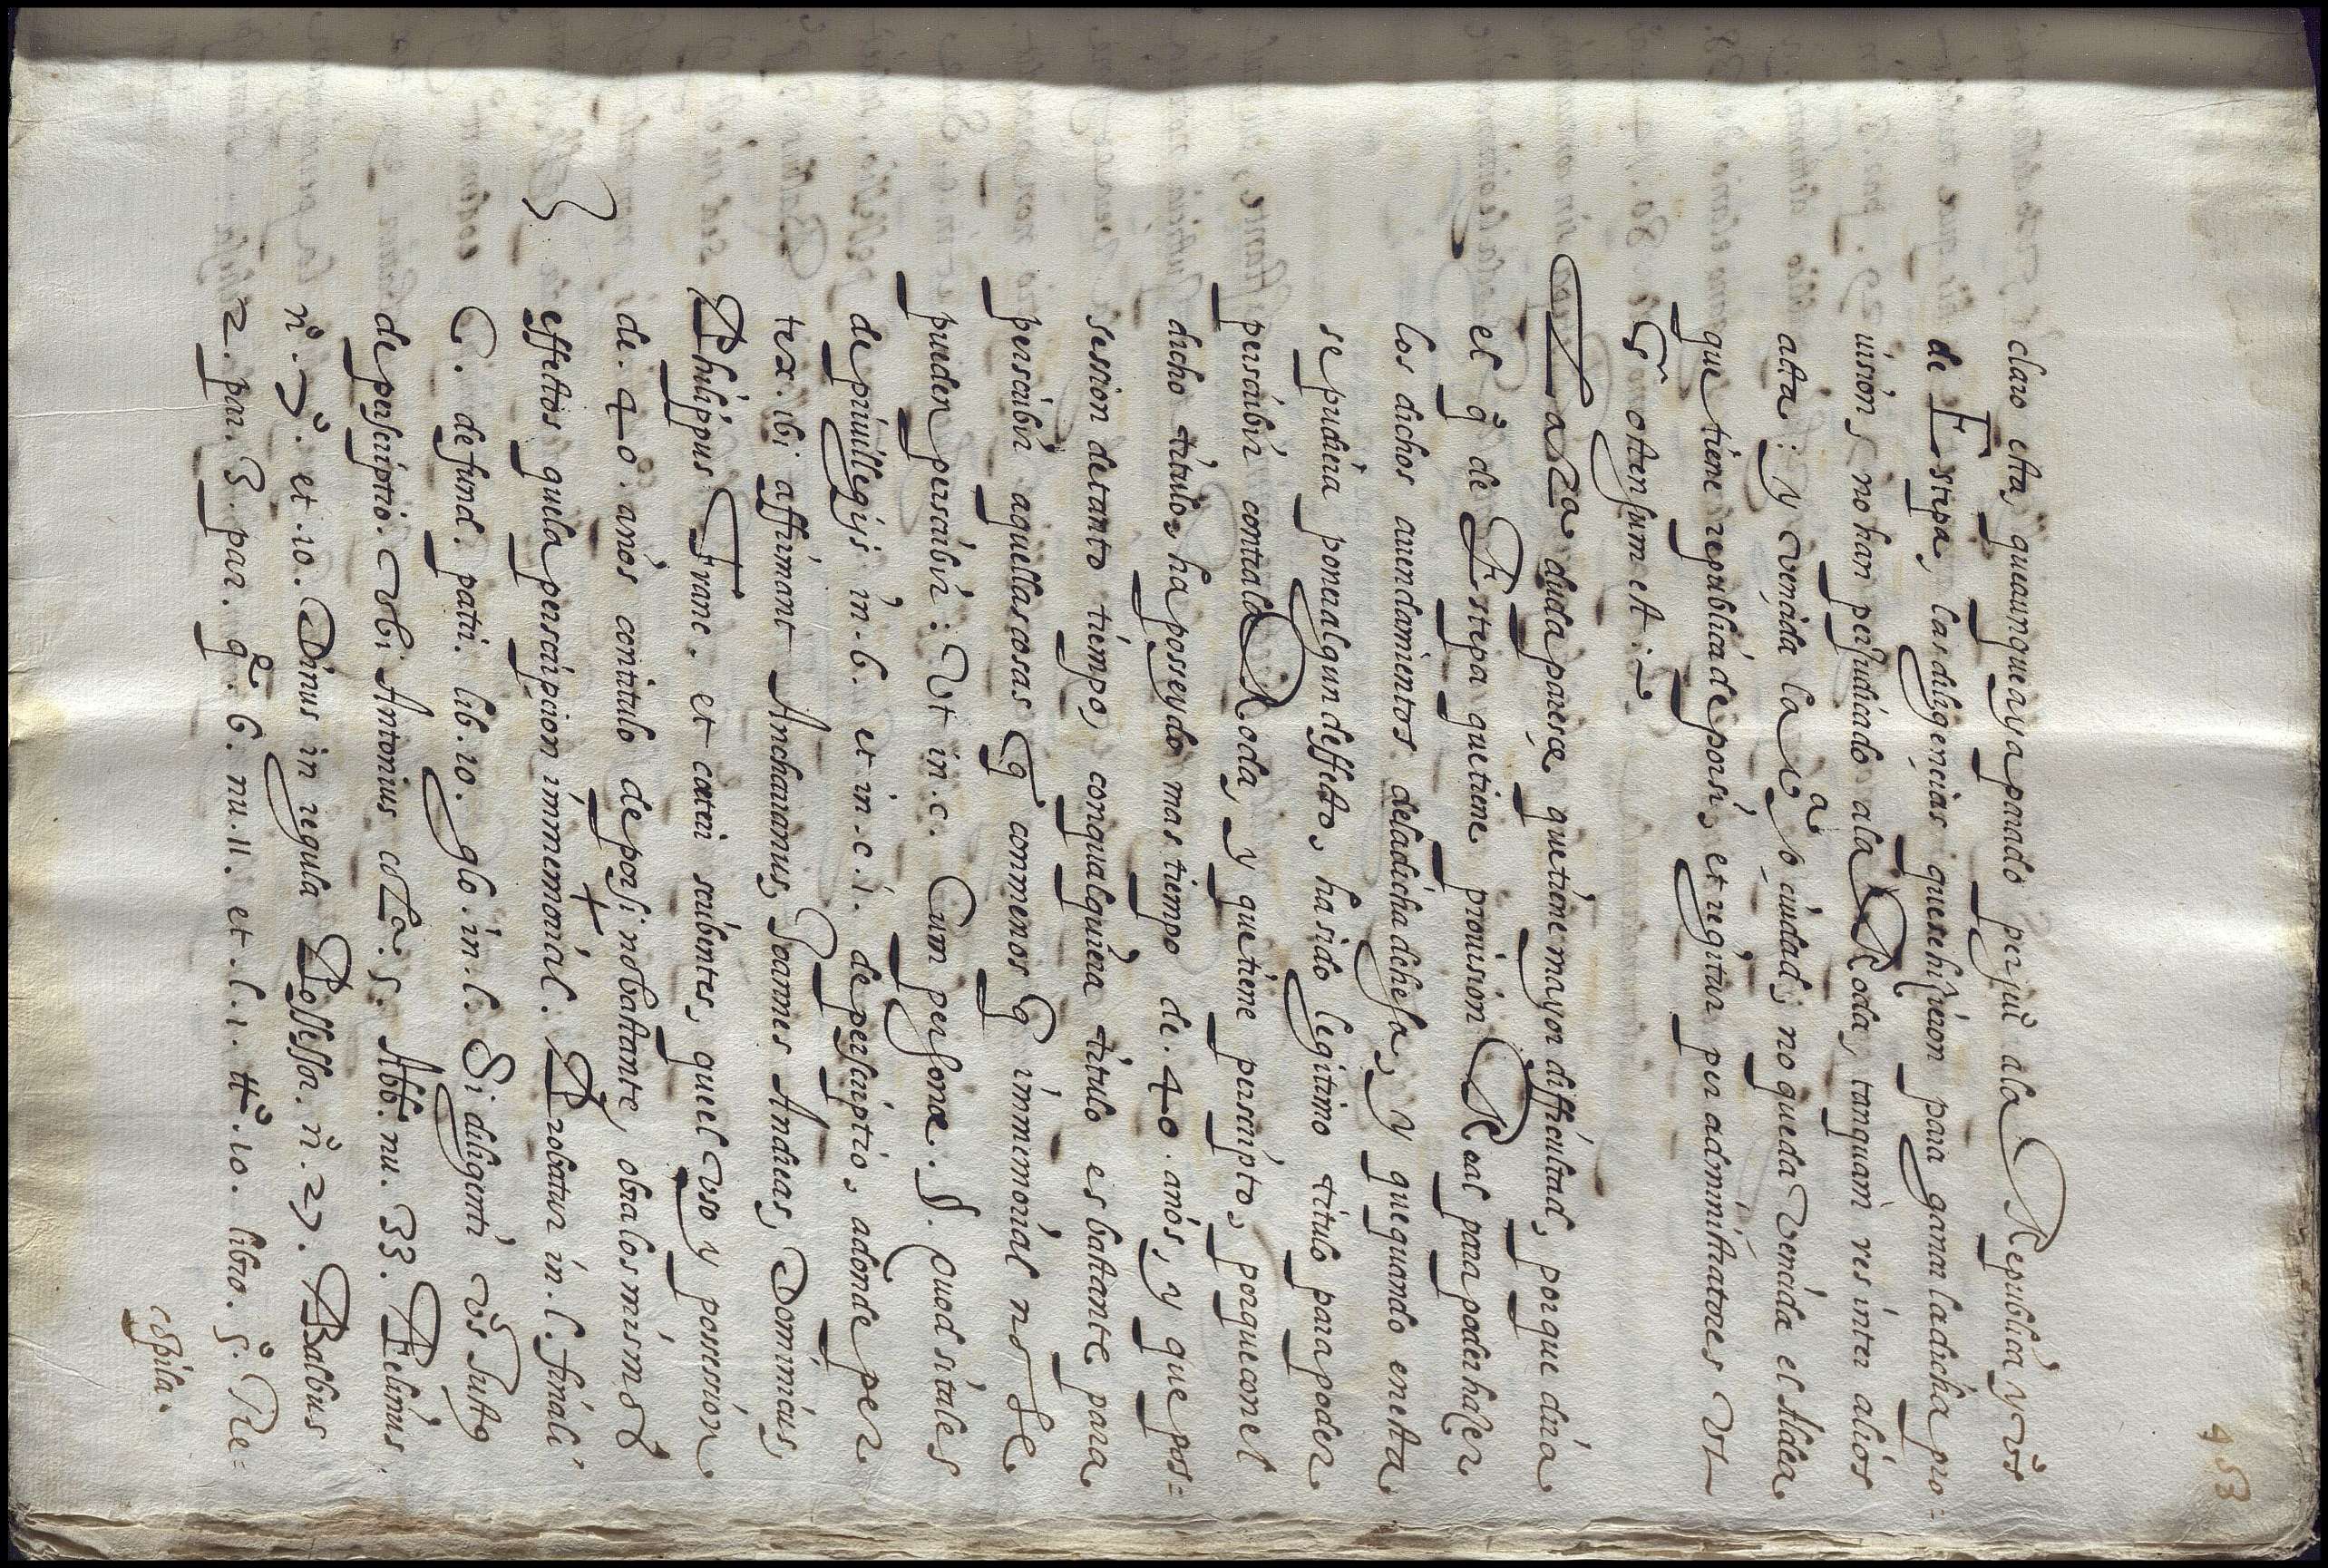 453
claro esta, que aunque aya parado perjuº a la Republica y vºs
de Estepa, las diligençias que se hizieron para ganar la dicha pro=
uision, no han perjudicado a la Roda, tanquam res inter alios
acta: y vençida la vª o ciudad, no queda vencida el Aldea
que tiene republica de por si, et regitur per administratores vt
ostensum est:
La 2a duda pareçe que tiene mayor difficultad, porque dira
el q̃ de Estepa que tiene prouision Real para poder hazer
los dichos arrendamientos de la dicha dehesa, y que quando en esta
se pudiera poner algun deffecto, ha sido legitimo titulo para poder
perscribir contra la Roda, y que tiene perscripto, porque con el
dicho titulo, ha posseydo mas tiempo de .40. años, y que pos=
session de tanto tiempo, con qualquiera titulo es bastante para
perscribir aquellas cosas q̃ con menos q̃ immemorial no se
pueden perscribir: Vt in.c. Cum personæ. §. Quod si tales
de priuillegijs. in.6. et in.c.1. de perscriptio, adonde per
tex. ibi affirmant Ancharanus, Joannes Andreas, Dominicus,
Philippus Franc. et cæteri scribentes, que el vso y possesion
de .40. años con titulo de por si no bastante, obra los mismos
effectos que la perscripcion immemorial. + Probatur in.l. finali
C. de fund. patri. lib.10. glo.in.l. Si diligenti vbi Justº
de perscriptio. Vbi Antonius colª.5. Abb. nu. 33. Felinus.
nº.7º. et.10. Dinus in regula Possessor. nº.27. Balbus
2. par. 3. par. qª. 6. nu.11. et.l.1. ttº.10. libro.5º. Re=
copila.